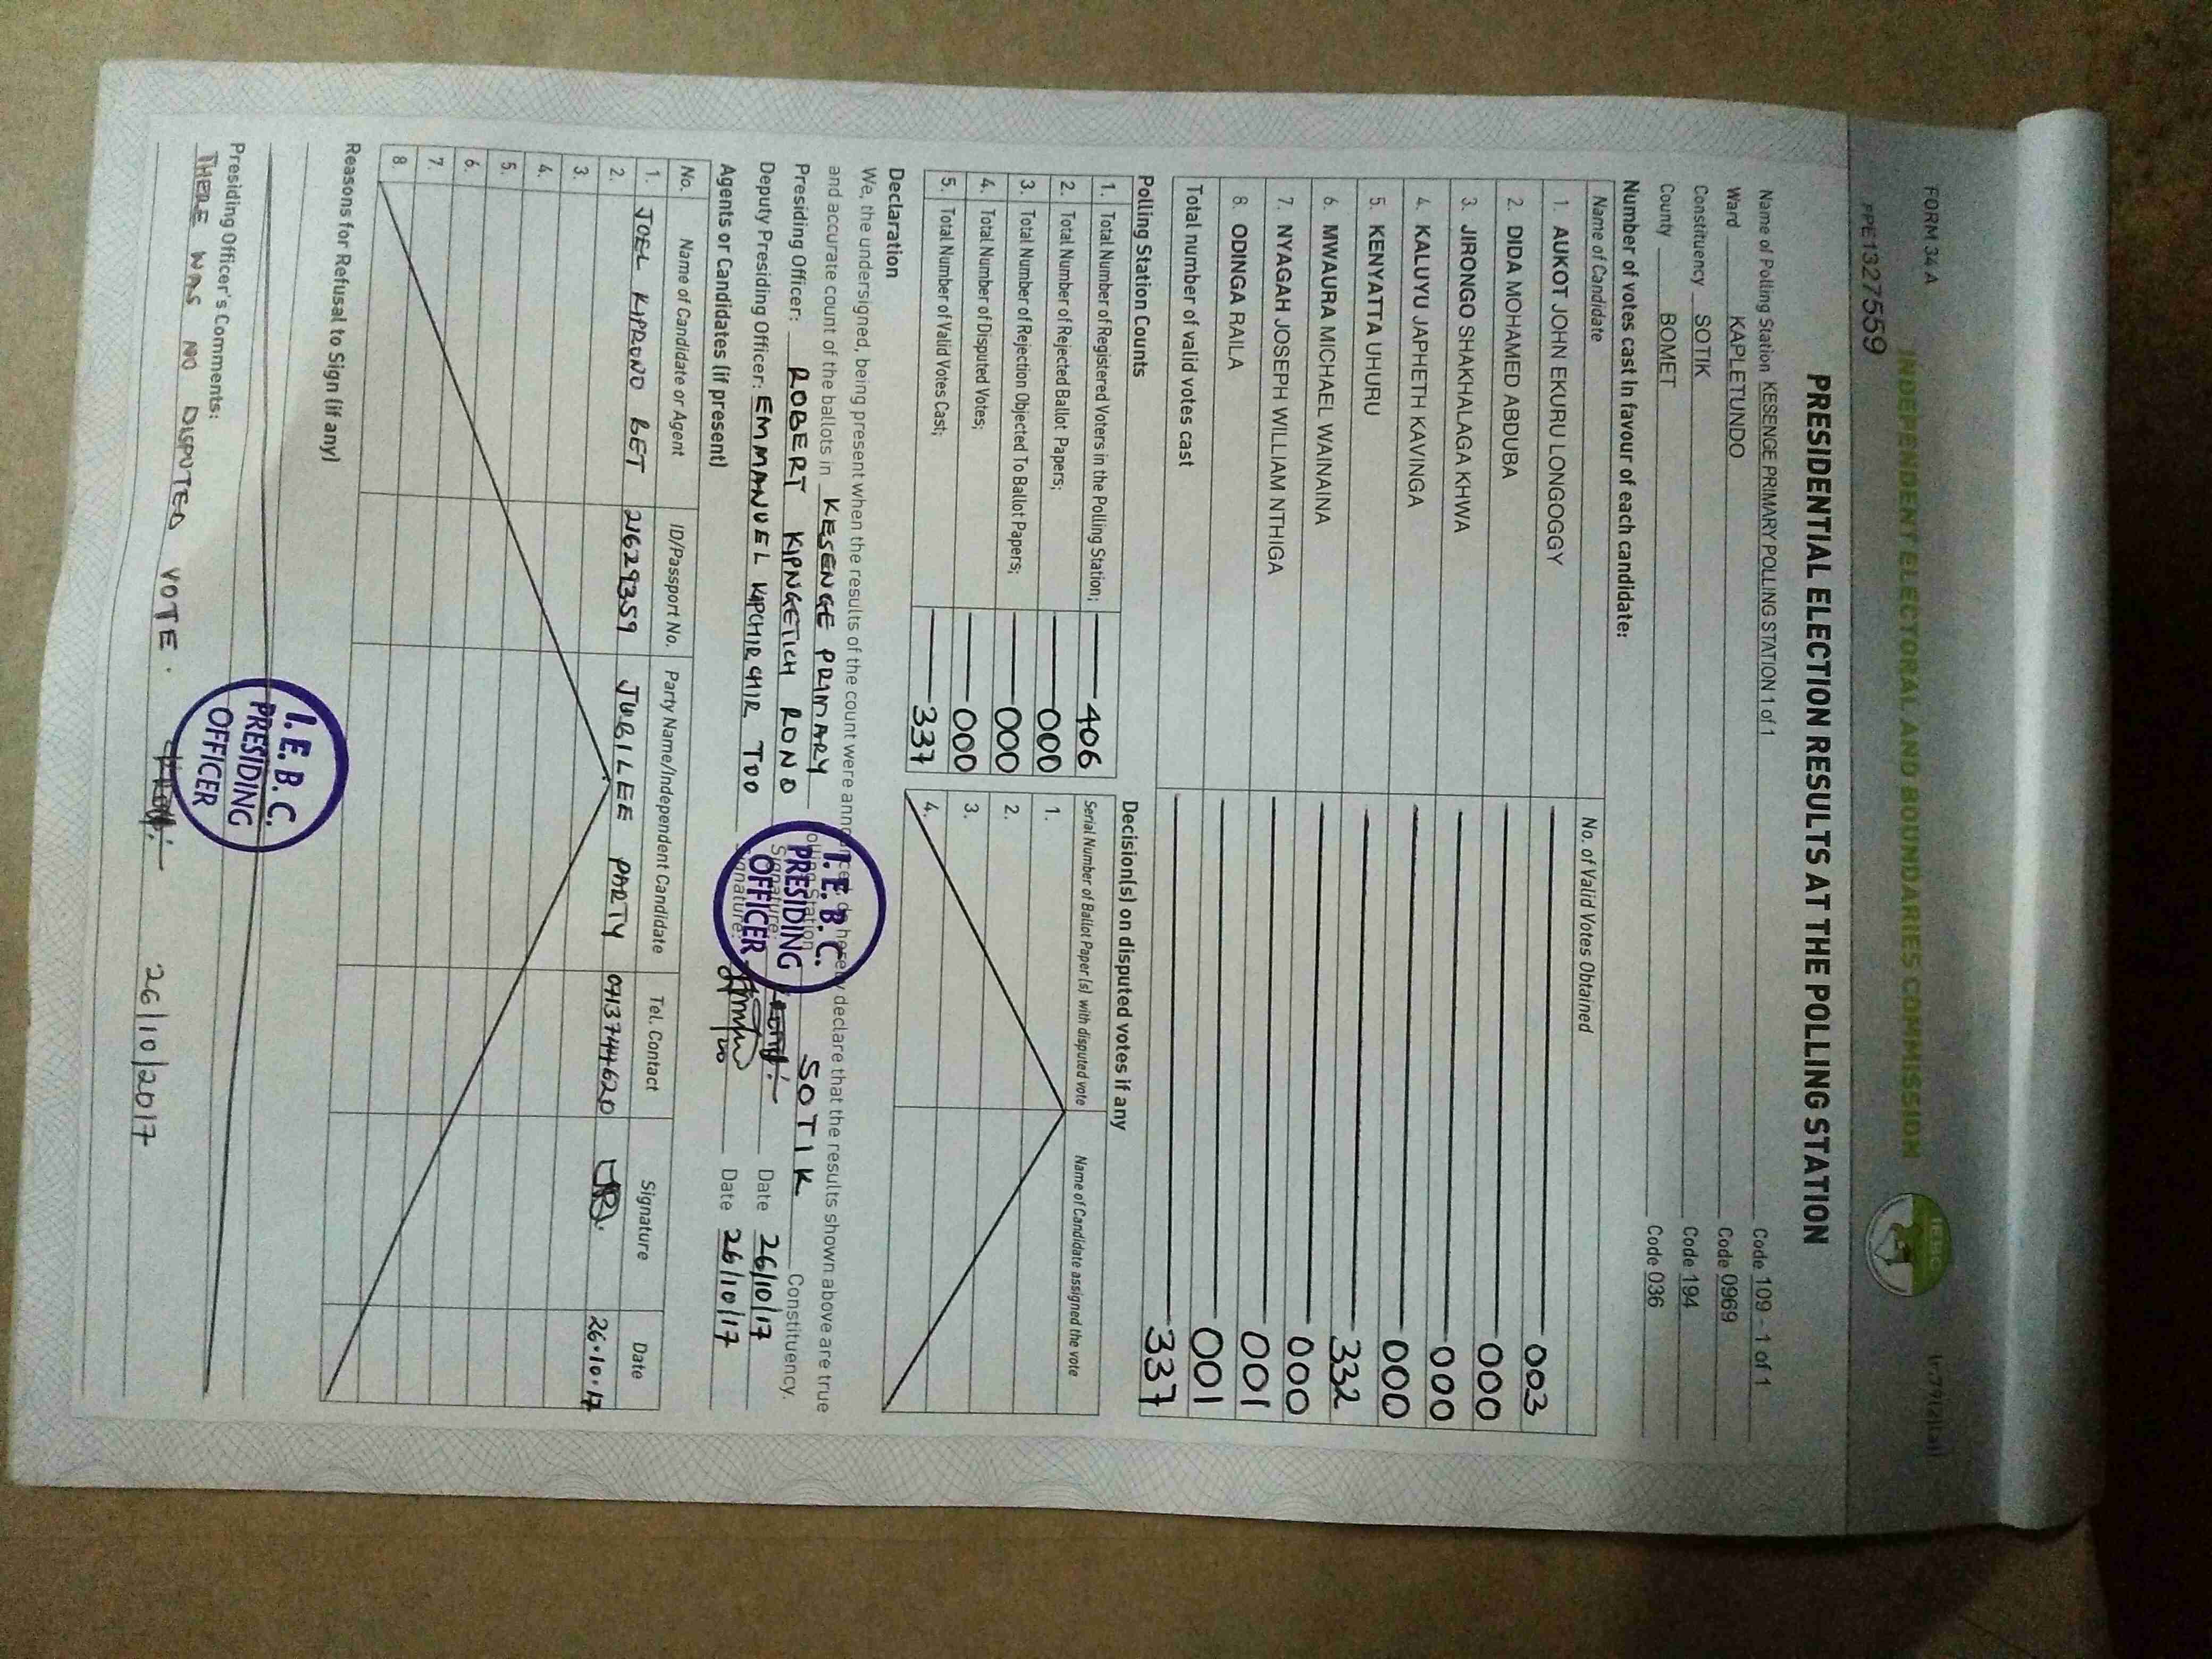 FORM 34 A
INDEPENDENT ELECTORAL AND BOUNDARIES COMMISSION
IEBC
PPE1327559
PRESIDENTIAL ELECTION RESULTS AT THE POLLING STATION
Name of Polling Station KESENGE PRIMARY POLLING STATION 1 of 1 Code 109 - 1 of 1
Ward KAPLETUNDO Code 0969
Constituency SOTIK Code 194
County BOMET Code 036
Number of votes cast in favour of each candidate:
Name of Candidate No. of Valid Votes Obtained
1. AUKOT JOHN EKURU LONGOGGY 003
2. DIDA MOHAMED ABDUBA 000
3. JIRONGO SHAKHALAGA KHWA 000
4. KALUYU JAPHETH KAVINGA 000
5. KENYATTA UHURU 332
6. MWAURA MICHAEL WAINAINA 000
7. NYAGAH JOSEPH WILLIAM NTHIGA 001
8. ODINGA RAILA 001
Total number of valid votes cast 337
Polling Station Counts
1. Total Number of Registered Voters in the Polling Station; 406
2. Total Number of Rejected Ballot Papers; 000
3. Total Number of Rejection Objected To Ballot Papers; 000
4. Total Number of Disputed Votes; 000
5. Total Number of Valid Votes Cast; 337
Decision(s) on disputed votes if any
Serial Number of Ballot Paper (s) with disputed vote Name of Candidate assigned the vote
1.
2.
3.
4.
Declaration
We, the undersigned, being present when the results of the count were announced, do hereby declare that the results shown above are true
and accurate count of the ballots in KESENGE PRIMARY Polling Station SOTIK Constituency.
Presiding Officer: ROBERT KIPNGETICH RONO Signature: Date 26/10/17
Deputy Presiding Officer: EMMANUEL KIPCHIRCHIR TOO Signature: Date 26/10/17
I.E.B.C.
PRESIDING
OFFICER
Agents or Candidates (if present)
No. Name of Candidate or Agent ID/Passport No. Party Name/Independent Candidate Tel. Contact Signature Date
1. JOEL KIPRONO BET 21629359 JUBILEE PARTY 0713744620 26.10.17
2.
3.
4.
5.
6.
7.
8.
Reasons for Refusal to Sign (if any)
I.E.B.C.
PRESIDING
OFFICER
Presiding Officer's Comments:
THERE WAS NO DISPUTED VOTE. 26/10/2017